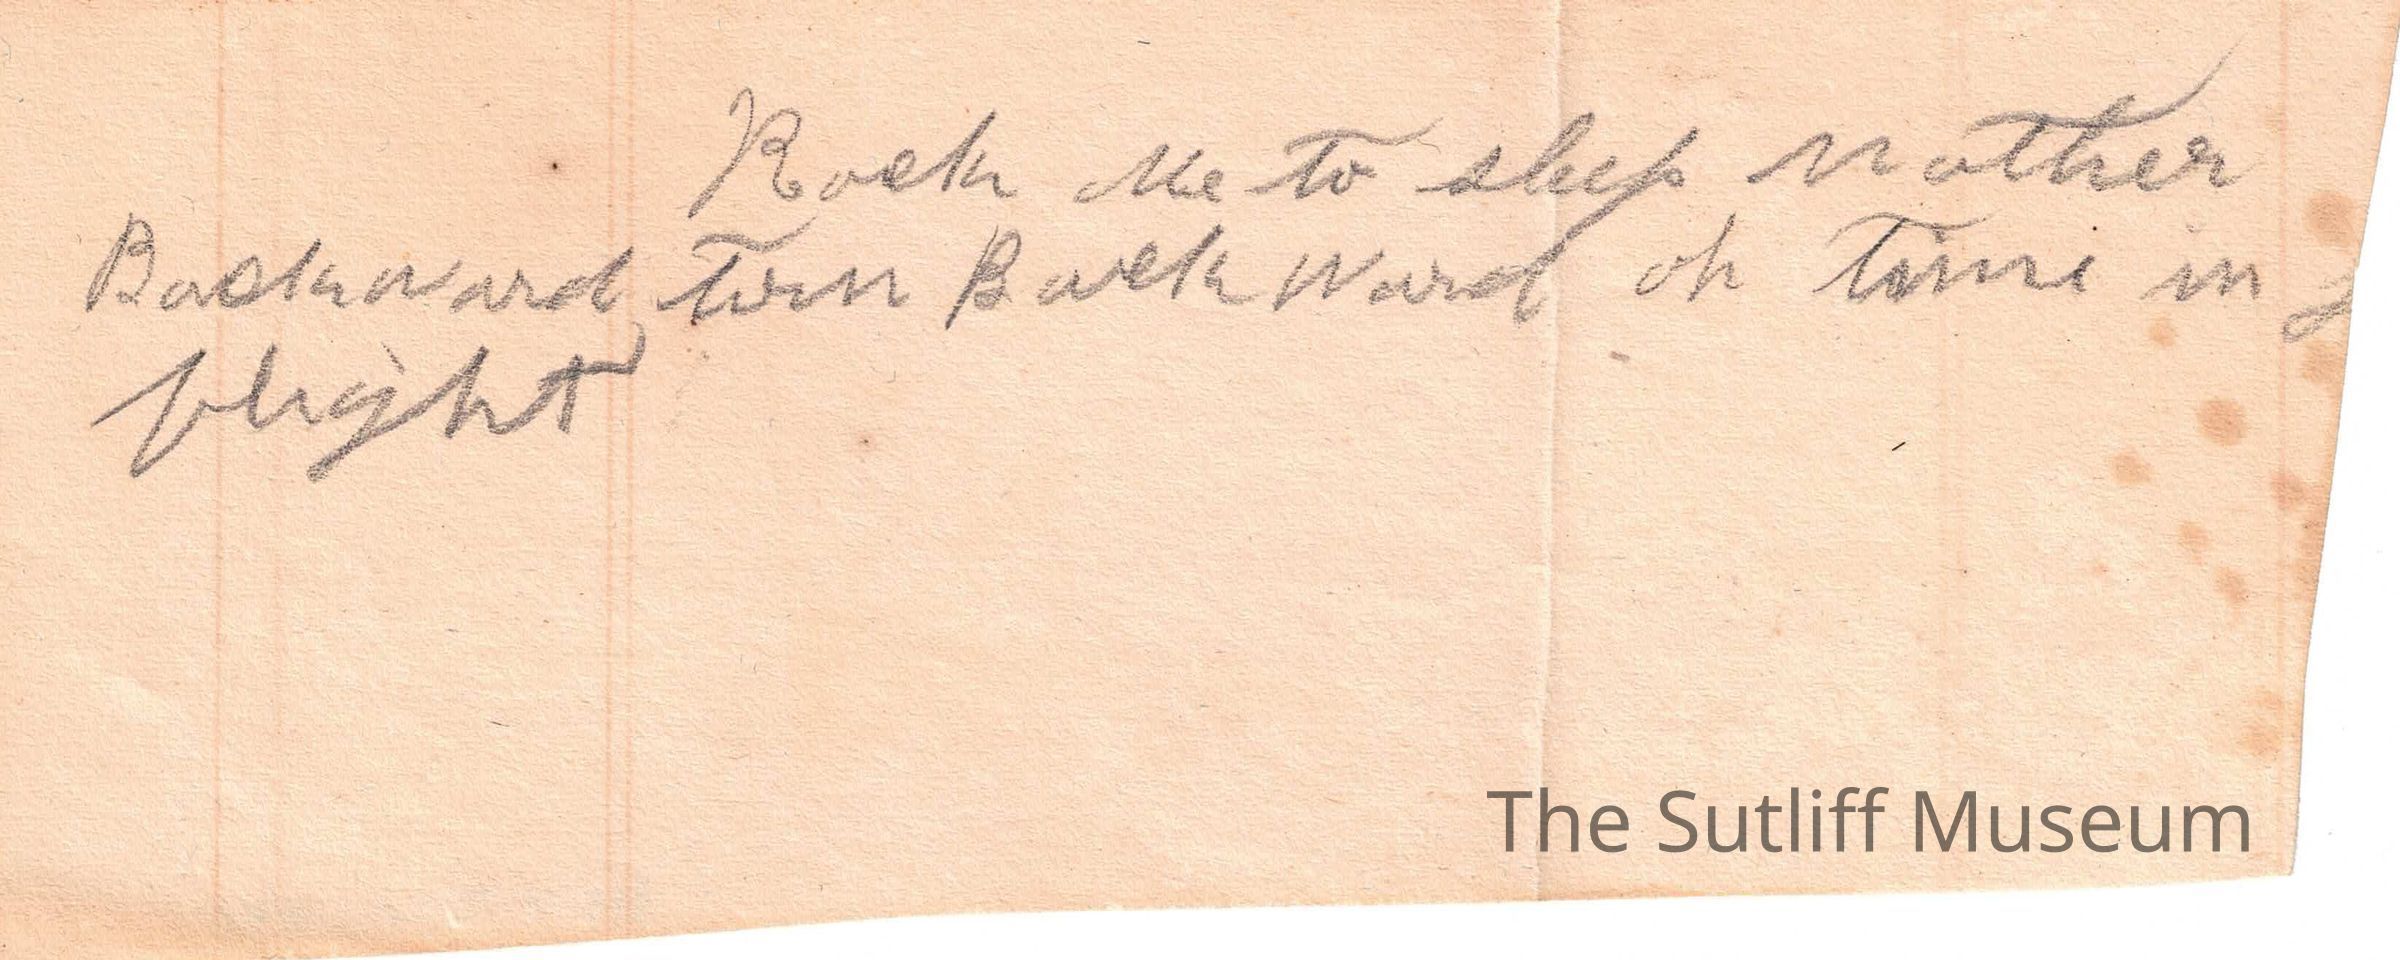 Rock Me to sleep Mother
Backward turn Backward oh Time in
flight
The Sutliff Museum